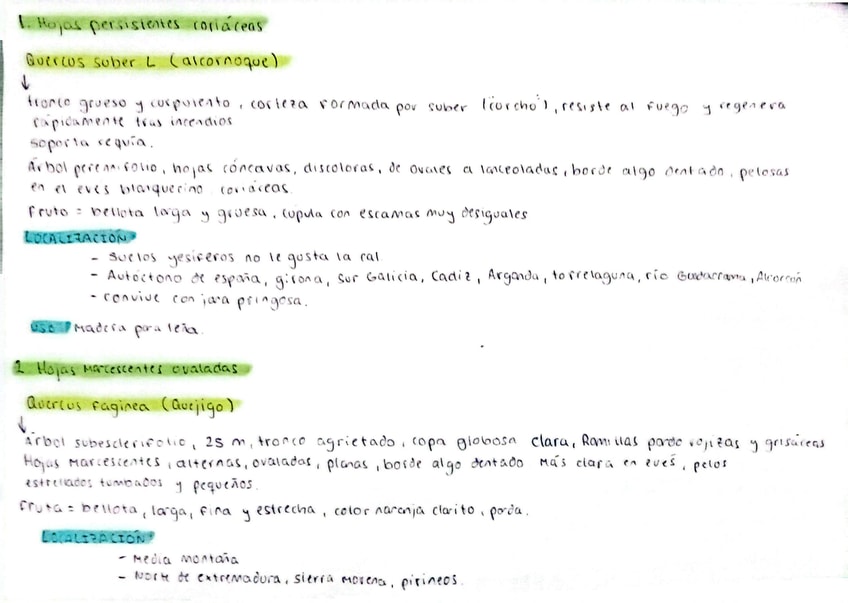 1. Hojas persistentes coriáceas
Quercus suber L (alcornoque)
↓
tronco grueso y corpulento, corteza formada por suber (corcho), resiste al fuego y regenera
rápidamente tras incendios
soporta sequía.
Árbol perennifolio, hojas cóncavas, discoloras, de ovales a lanceoladas, borde algo dentado, pelosas
en el evés blanquecino coriáceas
Fruto = bellota larga y gruesa, cúpula con escamas muy desiguales
LOCALIZACIÓN
- Suelos yesíferos no le gusta la cal
- Autóctono de españa, girona, sur Galicia, Cadiz, Arganda, torrelaguna, río Guadarrama, Alcorcón
- convive con jara pringosa.
USO Madera para leña.
2. Hojas Marcescentes ovaladas
Quercus faginea (Quejigo)
↓
Árbol subesclerifolio, 25 m, tronco agrietado, copa globosa clara, Ramillas pardo rojizas y grisáceas
Hojas Marcescentes, alternas, ovaladas, planas, borde algo dentado Más clara en evés, pelos
estrellados tumbados y pequeños.
Fruta = bellota, larga, fina y estrecha, color naranja clarito, parda.
LOCALIZACIÓN
- Media montaña
- Norte de extremadura, sierra morena, pirineos.